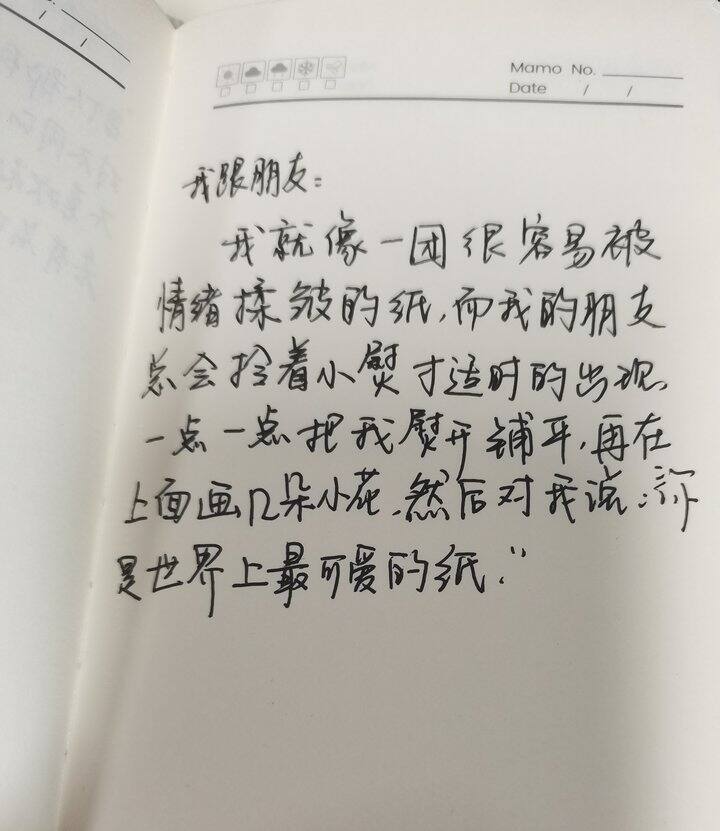 Mamo No.
Date / /
我跟朋友：
我就像一团很容易被
情绪揉皱的纸，而我的朋友
总会拎着小熨斗适时的出现，
一点一点把我熨开铺平，再在
上面画几朵小花，然后对我说：“你
是世界上最可爱的纸.”